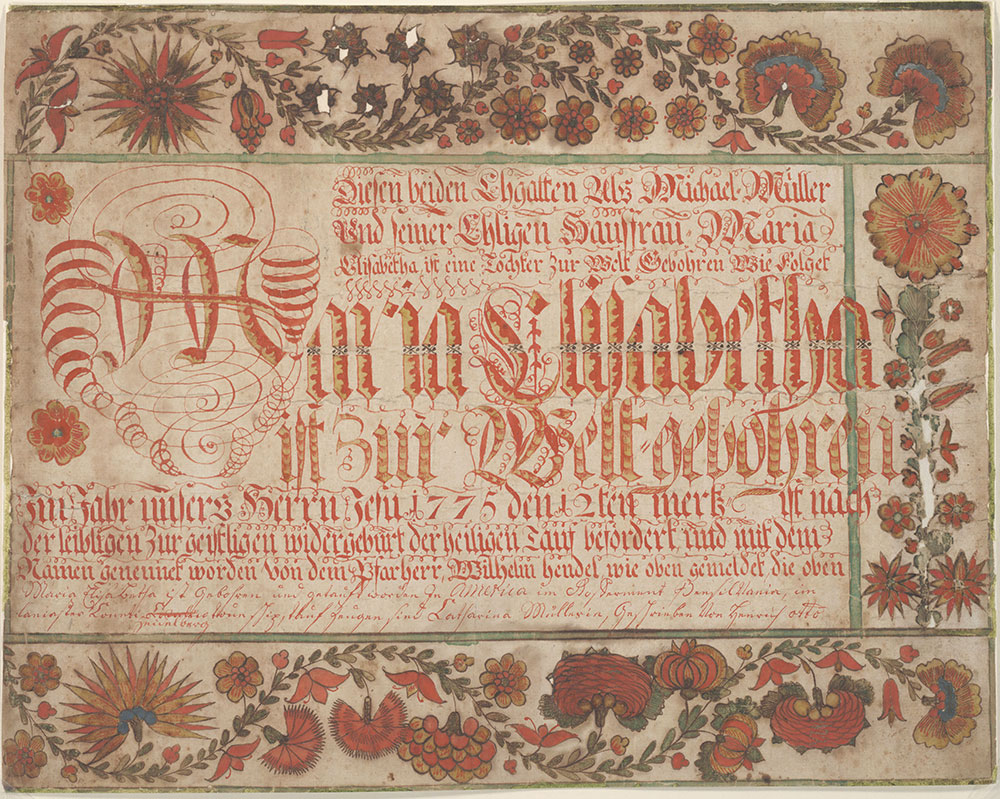 Diesen beiden Ehgatten Als Michael Müller
Und seiner Ehligen Haussfrau Maria
Elisabetha ist eine Tochter Zur Welt Gebohren Wie Folget
Maria Elisabetha
ist Zur Welt gebohren
Im Jahr unsers Herrn Jesu 1775 den 12ten mertz ist nach
der leibligen Zur geistligen widergeburt der heiligen Tauf befördert und mit dem
Namen genennet worden Von dem Pfarherr Wilhelm hendel wie oben gemeldet die oben
Maria Elisabetha ist Geboren und getauft worden in America im Bensilvania im
Counti Heidelberg Taufzeugen sind Catharina Müllerin Geschrieben Von Henrich otto